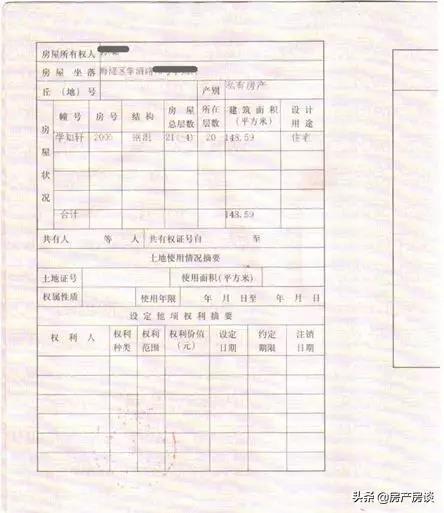 房屋所有权人
房屋坐落 海淀区学清路
丘(地)号 产别 私有房产
房屋状况
幢号 房号 结构 房屋总层数 所在层数 建筑面积(平方米) 设计用途
学知轩 2006 钢混 21(-4) 20 148.59 住宅
合计 148.59
共有人 等 人 共有权证号自 至
土地使用情况摘要
土地证号 使用面积(平方米)
权属性质 使用年限 年 月 日至 年 月 日
设定他项权利摘要
权利人 权利种类 权利范围 权利价值(元) 设定日期 约定期限 注销日期
头条 @房产房谈